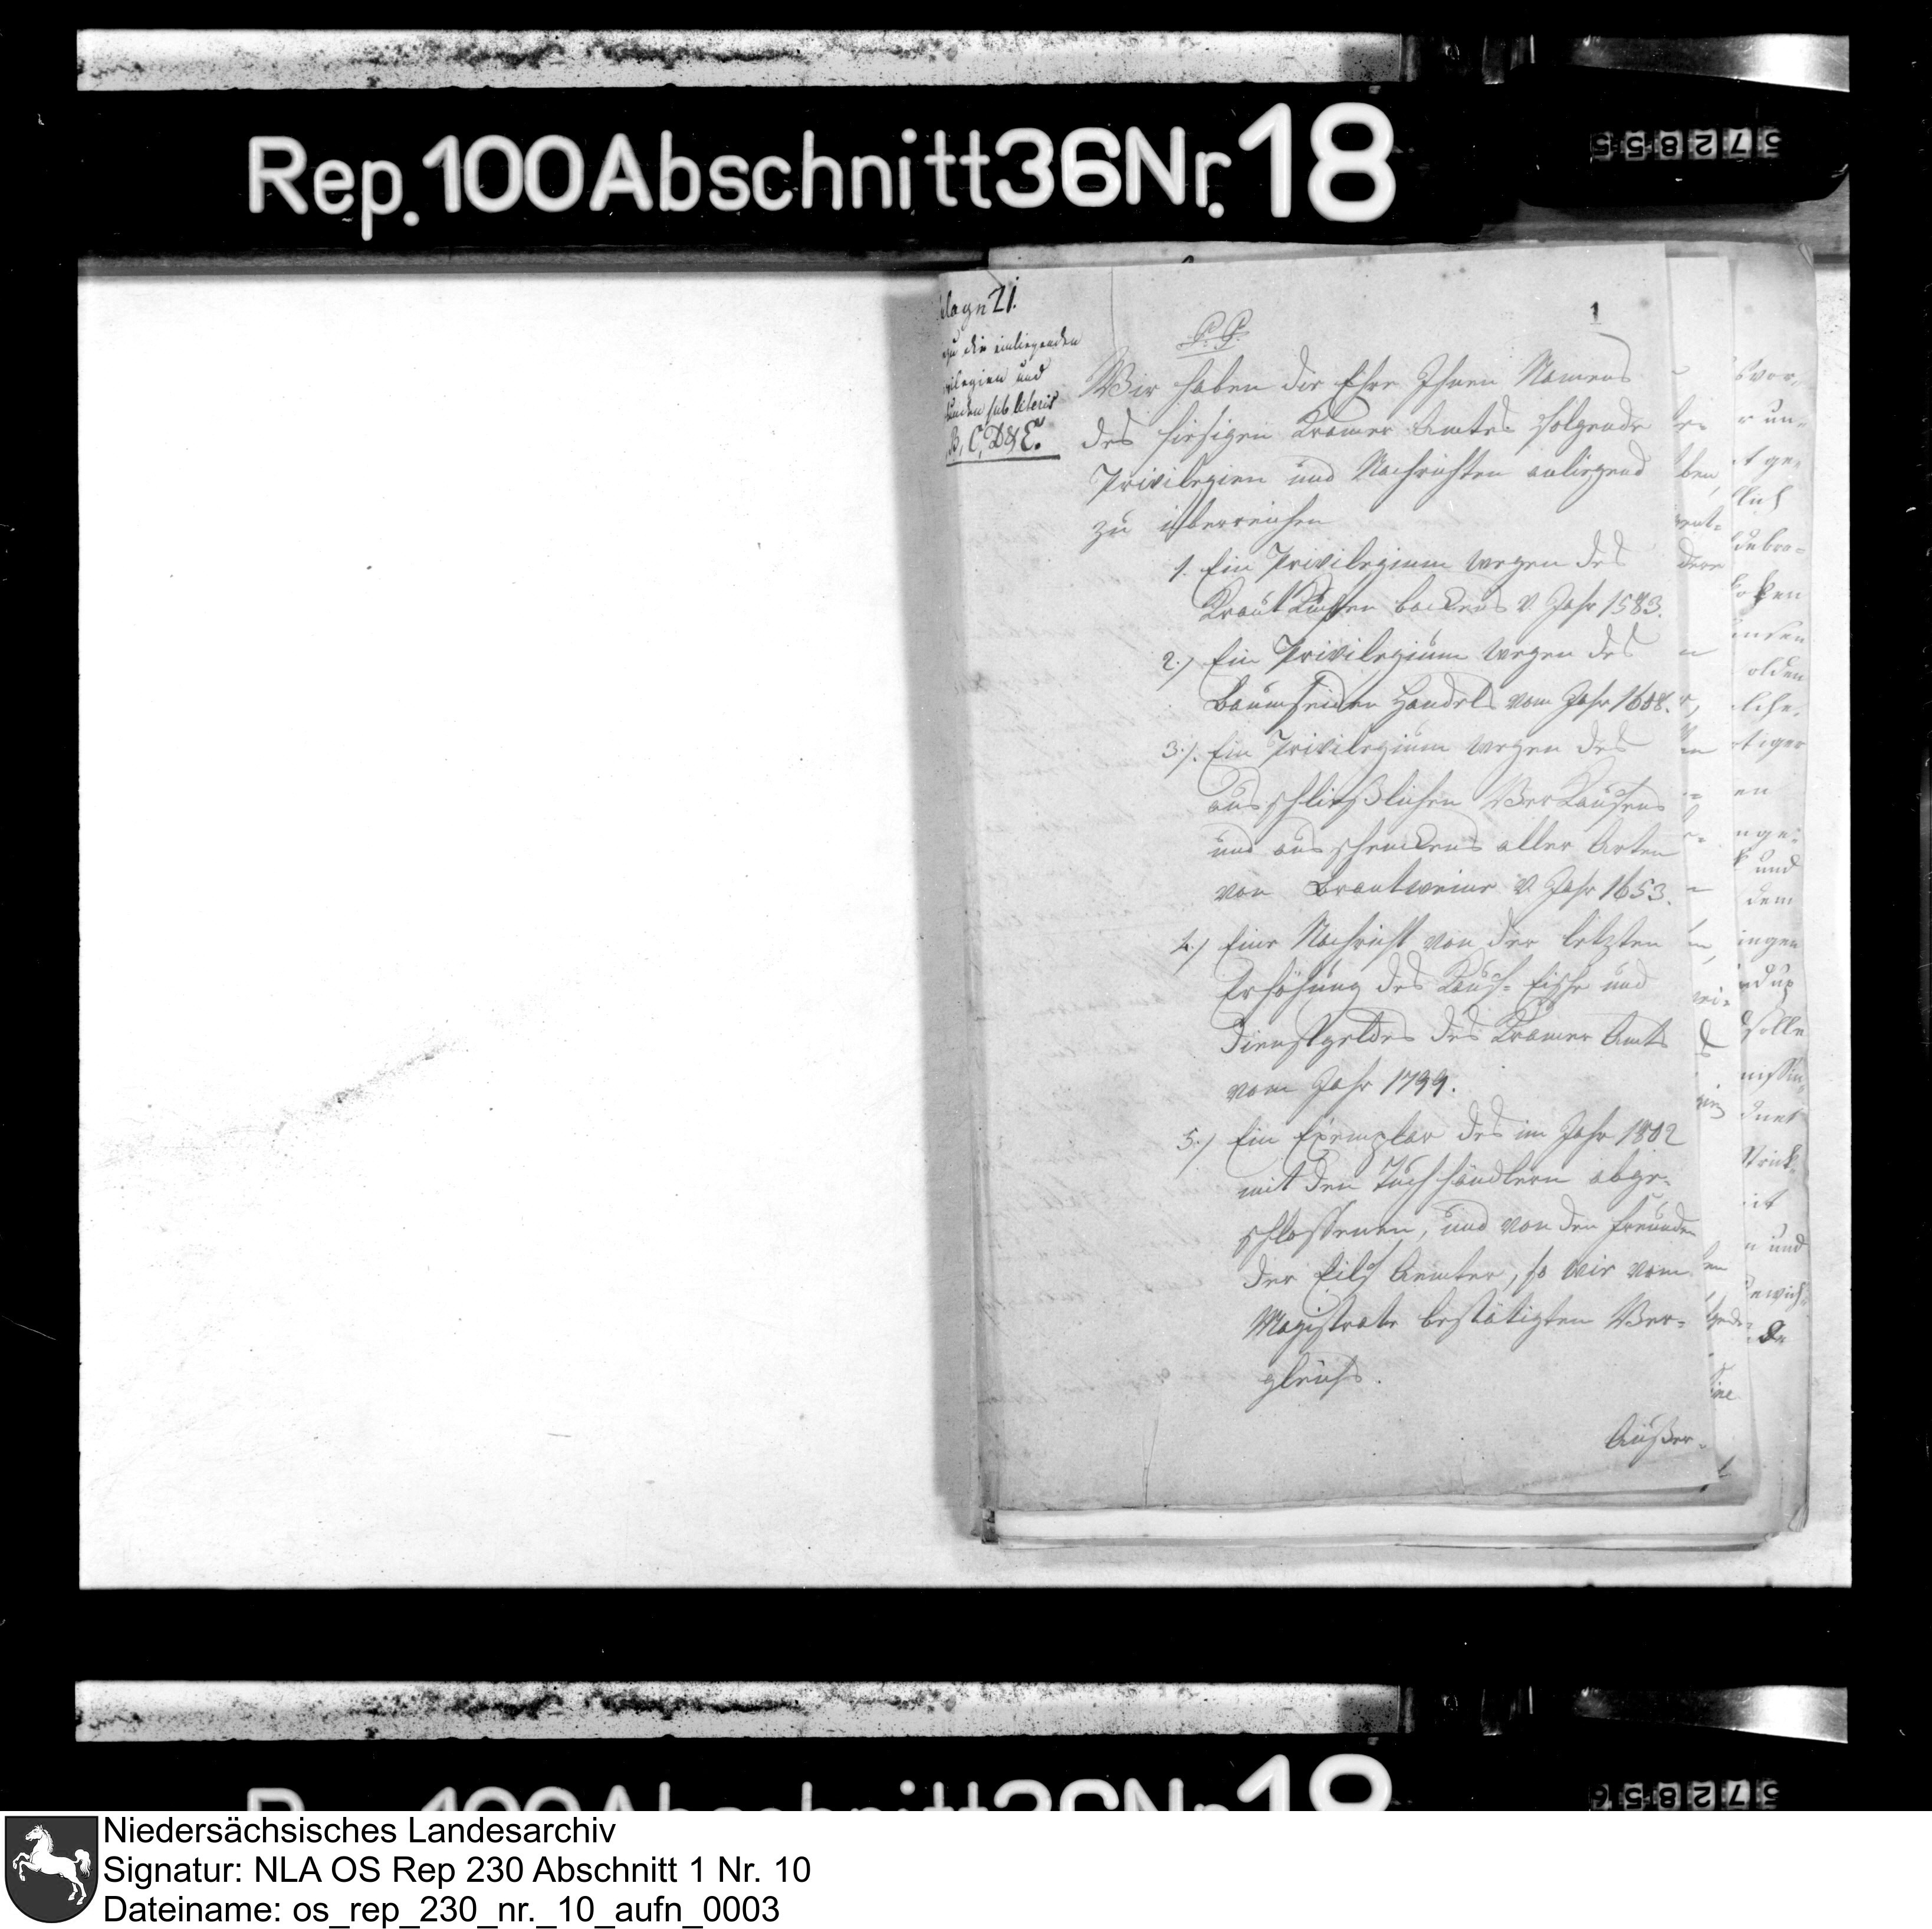 Rep. 100 Abschnitt 36 Nr. 18
572855
1
die einliegenden
und
sub literis
B, C, D & E.
P. P.
Wir haben die Ehre Ihnen Namens
des hiesigen Kramer Amtes folgende
Privilegien und Nachrichten anliegend
zu überreichen
1. Ein Privilegium wegen des
Krautkuchen backens v. Jahr 1583.
2.) Ein Privilegium wegen des
Baumseiden Handels vom Jahr 1608.
3.). Ein Privilegium wegen des
ausschließlichen Verkaufens
und ausschenckens aller Arten
von Brantweine v. Jahr 1653.
4.) Eine Nachricht von der letzten
Erhöhung des Kauf- Eische und
Dienstgeldes des Kramer Amts
vom Jahr 1799.
5.) Ein Exemplar des im Jahr 1802
mit den Tuchhändlern abge-
schlossenen, und von den Freunden
der Eilf Aemter, so wie vom
Magistrate bestätigten Ver-
gleichs.
Außer-
572856
Niedersächsisches Landesarchiv
Signatur: NLA OS Rep 230 Abschnitt 1 Nr. 10
Dateiname: os_rep_230_nr._10_aufn_0003